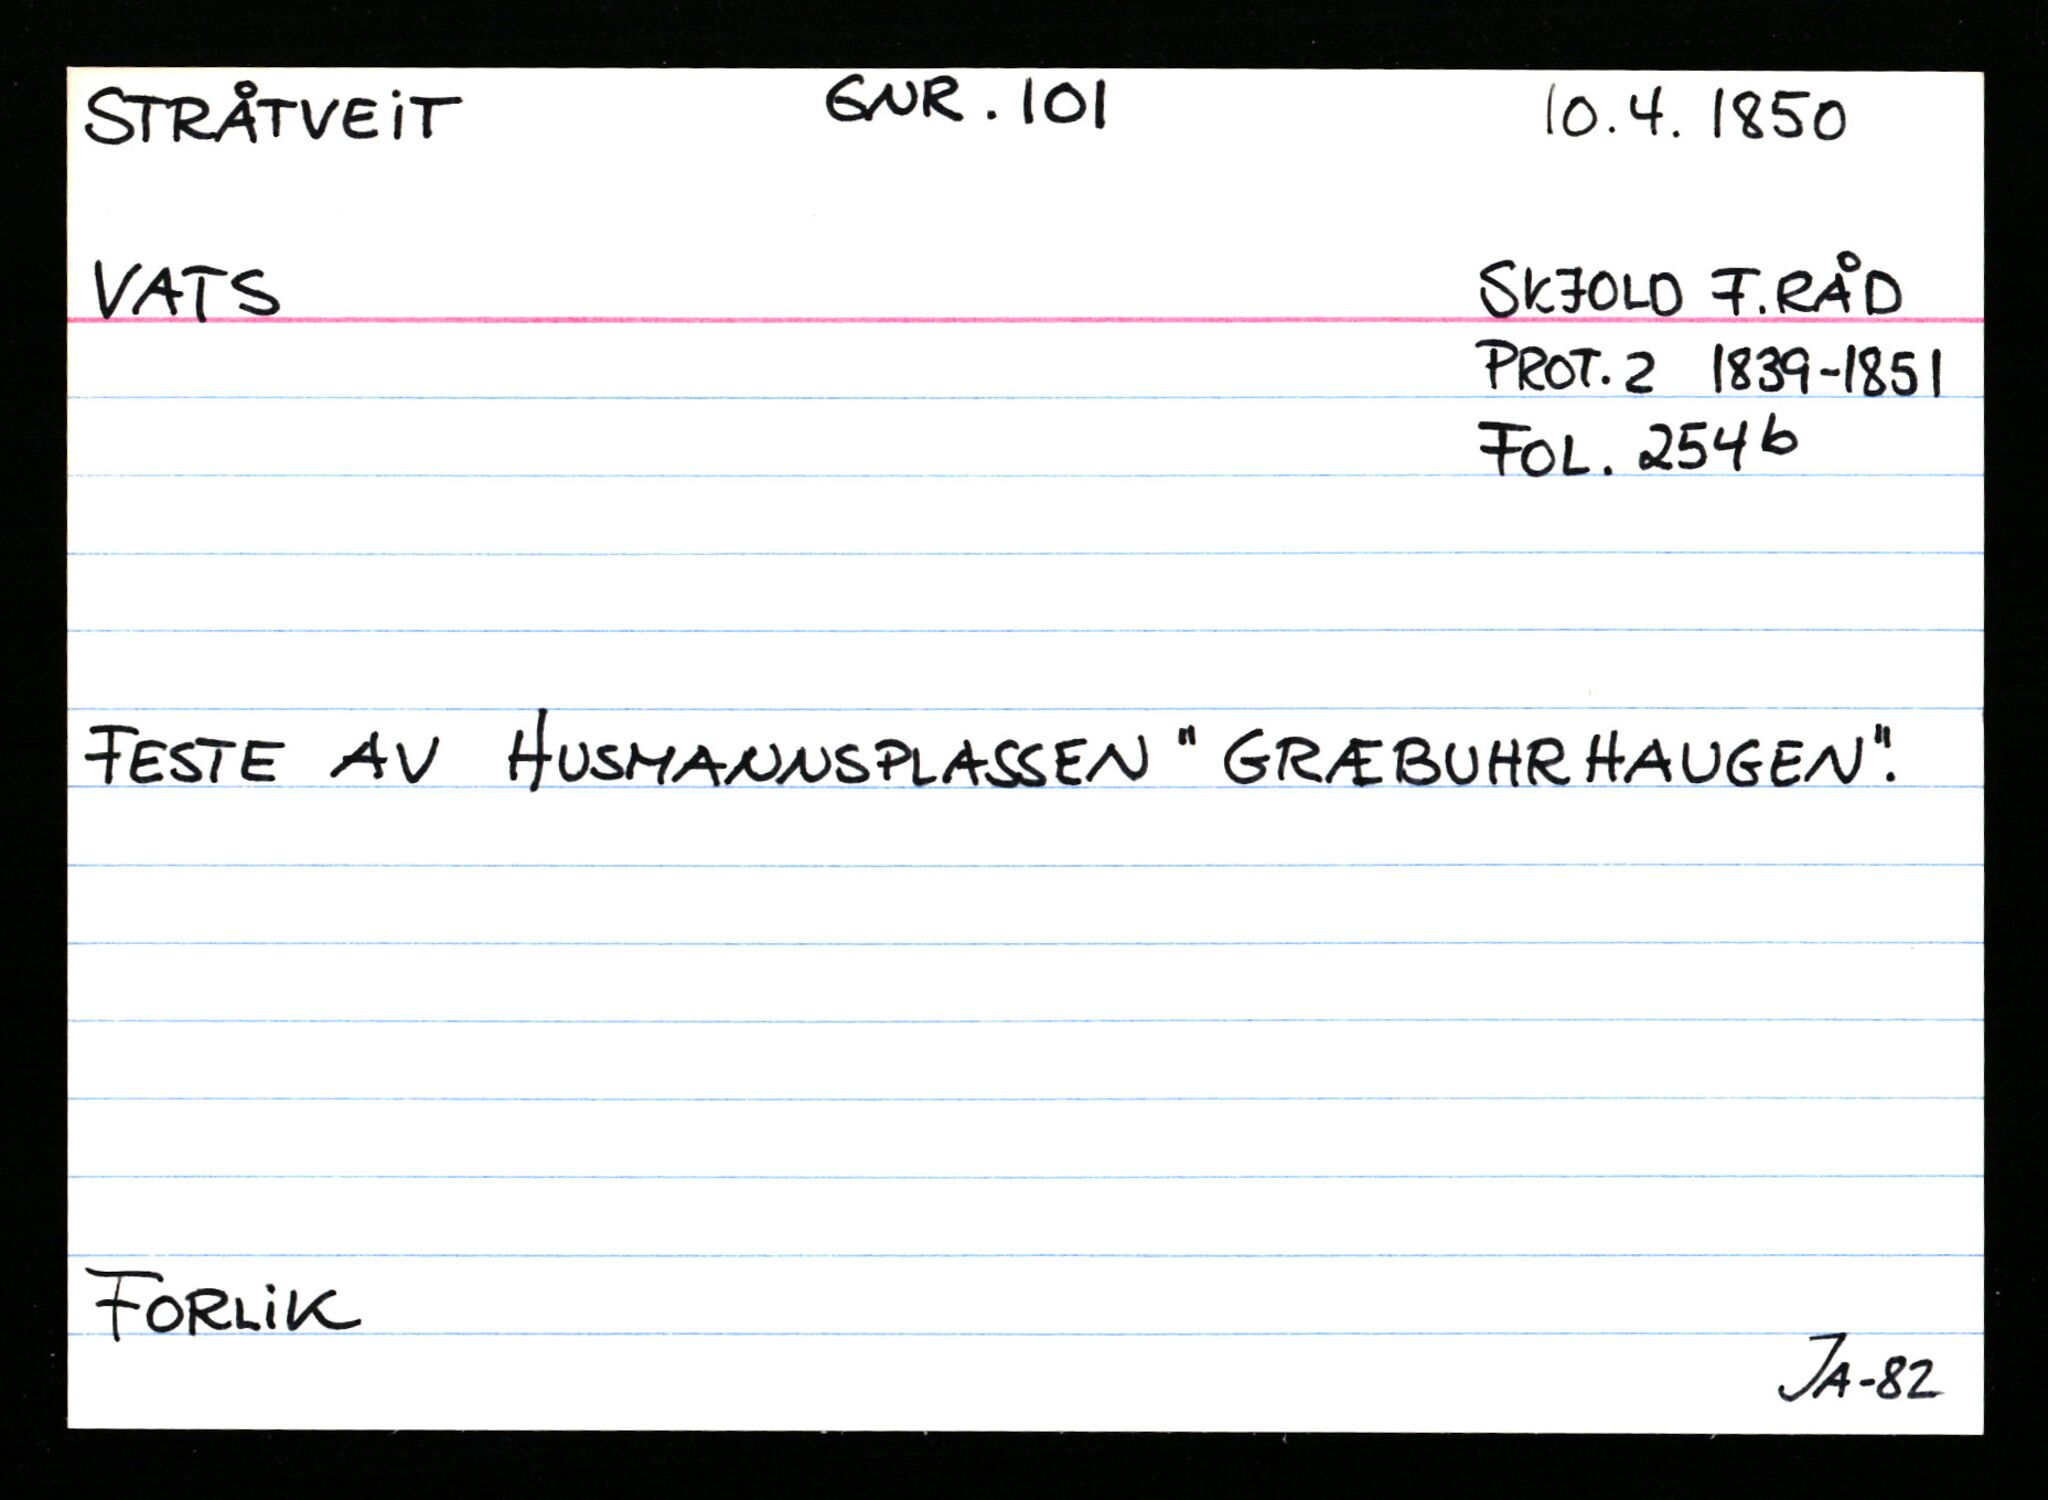 STRÅTVEIT GNR. 101 10.4.1850
VATS SKJOLD F.RÅD
PROT. 2 1839-1851
FOL. 254b
FESTE AV HUSMANNSPLASSEN "GRÆBUHRHAUGEN".
FORLIK
JA-82